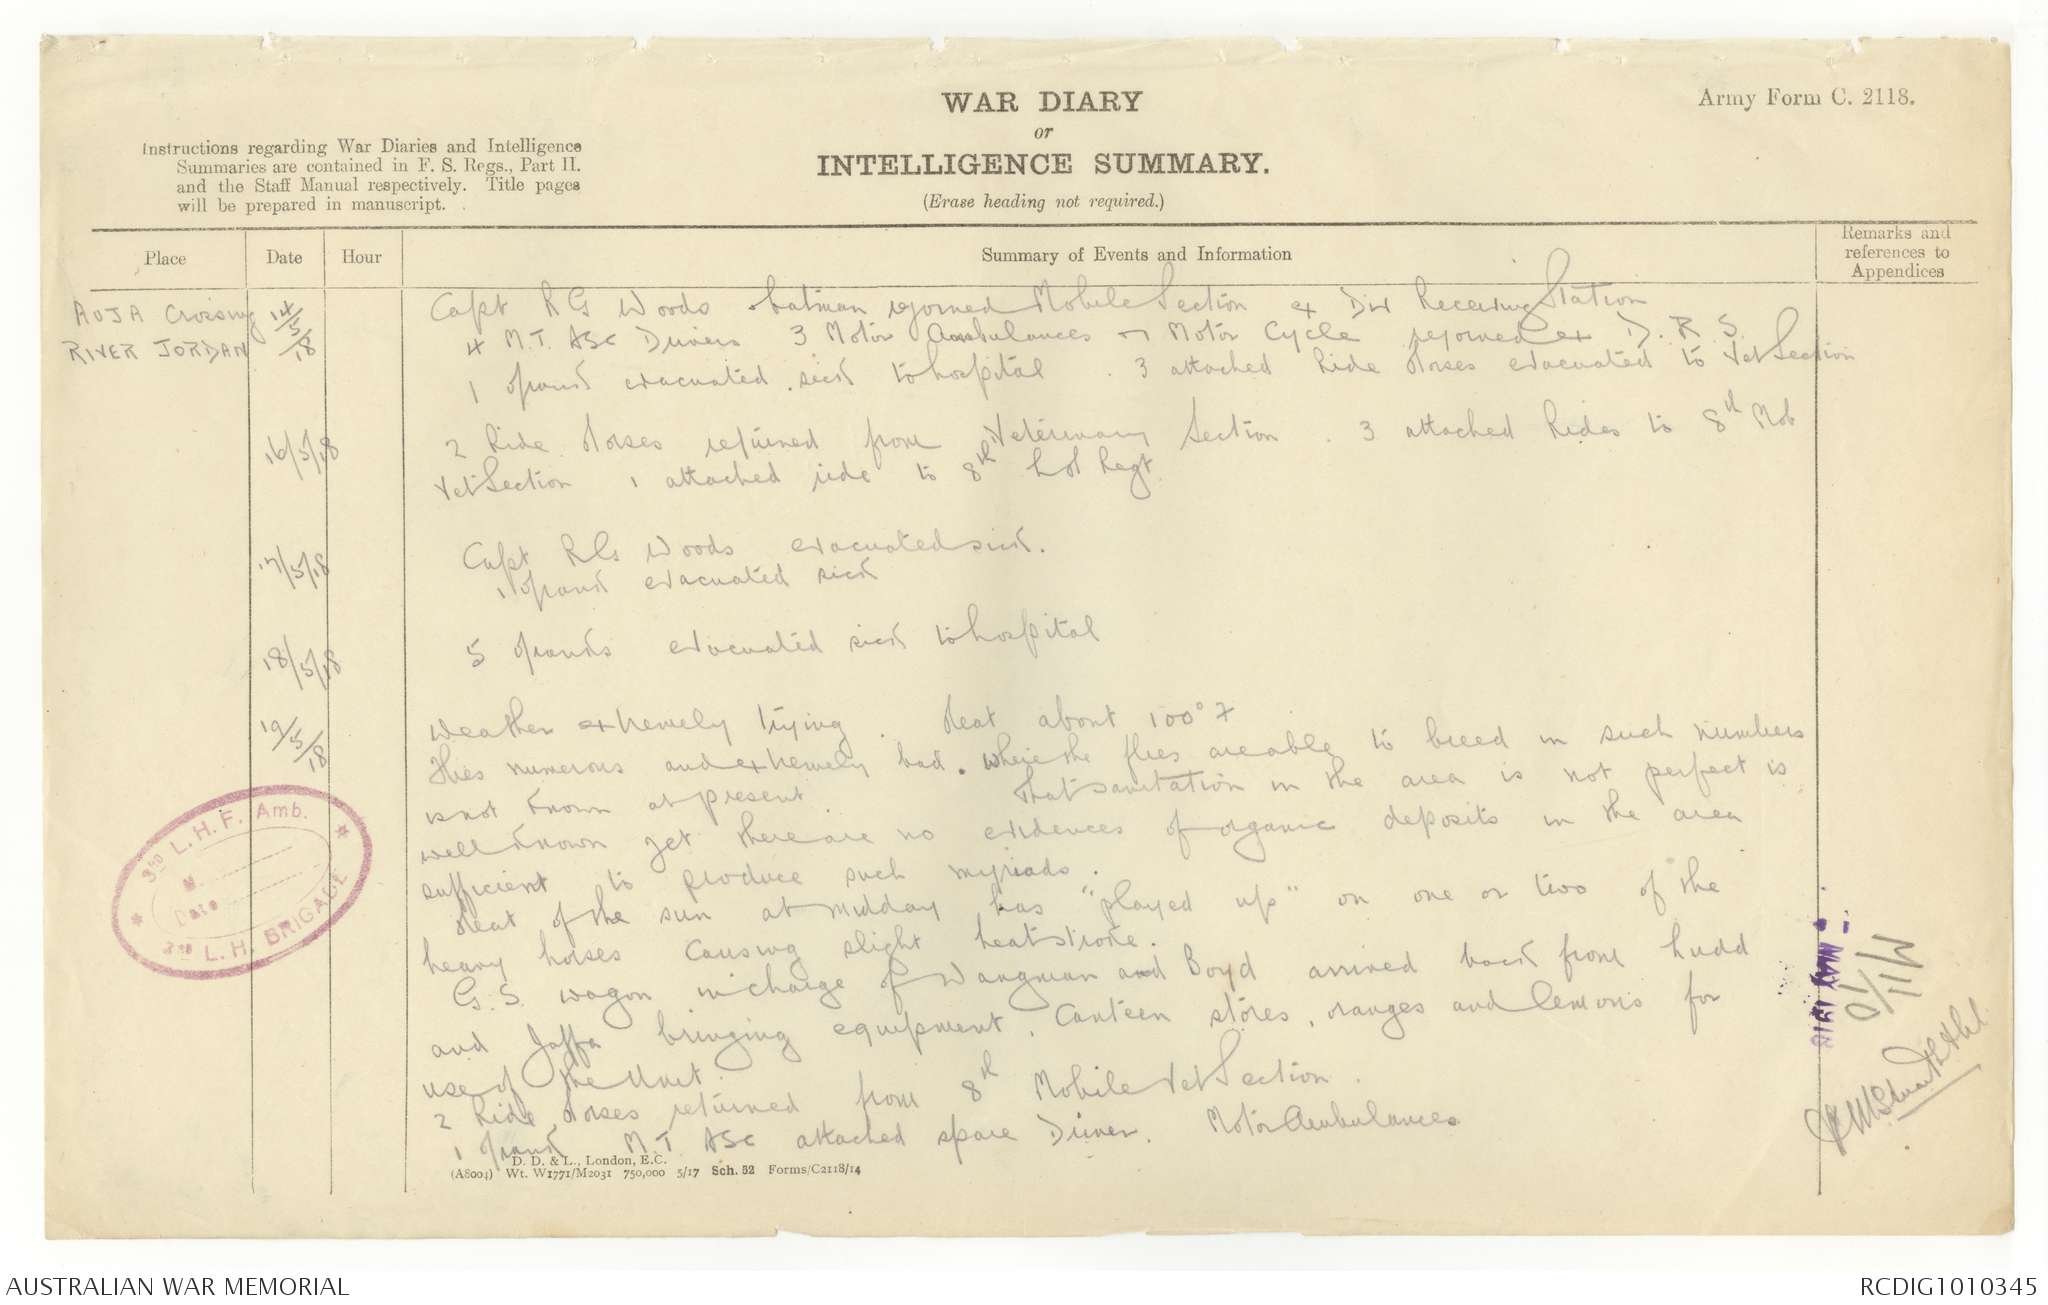 WAR DIARY
or
INTELLIGENCE SUMMARY.
(Erase heading not required.)
Army Form C. 2118.
Instructions regarding War Diaries and Intelligence
Summaries are contained in F. S. Regs., Part II.
and the Staff Manual respectively. Title pages
will be prepared in manuscript.
Place
Date
Hour
Summary of Events and Information
Remarks and
references to
Appendices
AUJA Crossing
RIVER JORDAN
14/5/18
Capt R G Woods & batman rejoined Mobile Section ex Div Receiving Station
4 M.T. ASC Drivers 3 Motor Ambulances & 1 Motor Cycle rejoined ex D.R.S.
1 O/rank evacuated sick to hospital. 3 attached Ride Horses evacuated to Vet Section
16/5/18
2 Ride Horses returned from Veterinary Section. 3 attached Rides to 8th Mob
Vet Section 1 attached ride to 8th L H Regt
17/5/18
Capt R G Woods evacuated sick.
1 O/rank evacuated sick
18/5/18
5 O/ranks evacuated sick to hospital
19/5/18
Weather extremely trying. Heat about 100° F
Flies numerous and extremely bad. Where the flies are able to breed in such numbers
is not known at present. That sanitation in the area is not perfect is
well known yet there are no evidences of organic deposits in the area
sufficient to produce such myriads.
Heat of the sun at midday has "played up" on one or two of the
heavy horses causing slight heatstroke.
G.S. wagon in charge of Wangman and Boyd arrived back from Ludd
and Jaffa bringing equipment, Canteen stores, oranges and lemons for
use of the Unit.
2 Ride Horses returned from 8th Mobile Vet Section.
1 O/rank M.T. ASC attached spare Driver. Motor Ambulances
3RD L.H.F. Amb.
Date
3RD L.H. BRIGADE
MAY 1918
D. D. & L., London, E.C.
(A8004) Wt. W1771/M2031 750,000 5/17 Sch. 52 Forms/C2118/14
AUSTRALIAN WAR MEMORIAL
RCDIG1010345